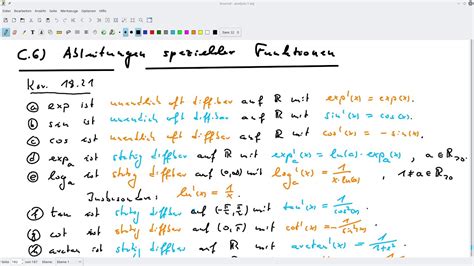 Datei Bearbeiten Ansicht
C.6) Ableitungen spezieller Funktionen
Kor. 18.21
ⓐ exp ist unendlich oft diffbar auf ℝ mit exp'(x) = exp(x).
ⓑ sin ist unendlich oft diffbar auf ℝ mit sin'(x) = cos(x).
ⓒ cos ist unendlich oft diffbar auf ℝ mit cos'(x) = -sin(x).
ⓓ expₐ ist stetig diffbar auf ℝ mit expₐ'(x) = ln(a)·expₐ(x), a ∈ ℝ>0.
ⓔ logₐ ist stetig diffbar auf (0,∞) mit logₐ'(x) = 1/(x·ln(a)), 1≠a ∈ ℝ>0.
Insbesondere: ln'(x) = 1/x.
ⓕ tan ist stetig diffbar auf (-π/2, π/2) mit tan'(x) = 1/cos²(x).
ⓖ cot ist stetig diffbar auf (0, π) mit cot'(x) = -1/sin²(x).
ⓗ arctan ist stetig diffbar auf ℝ mit arctan'(x) = 1/(1+x²).